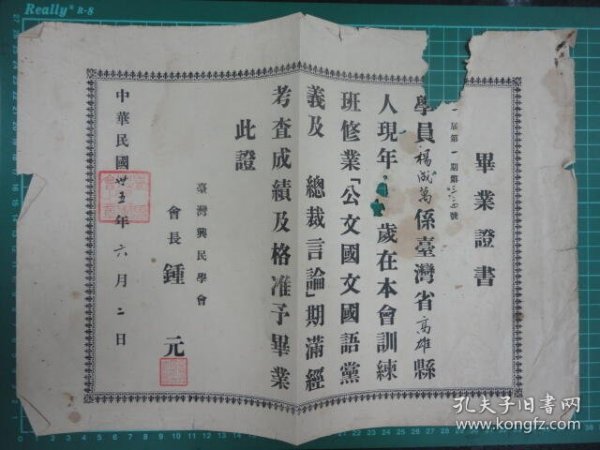 Really R-8
畢業證書
屆第一期第 號
學員楊成萬係臺灣省高雄縣
人現年 歲在本會訓練
班修業「公文國文國語黨
義及 總裁言論」期滿經
考查成績及格准予畢業
此證
臺灣興民學會
會長 鍾元
中華民國卅五年六月二日
孔夫子旧書网
www.kongfz.com